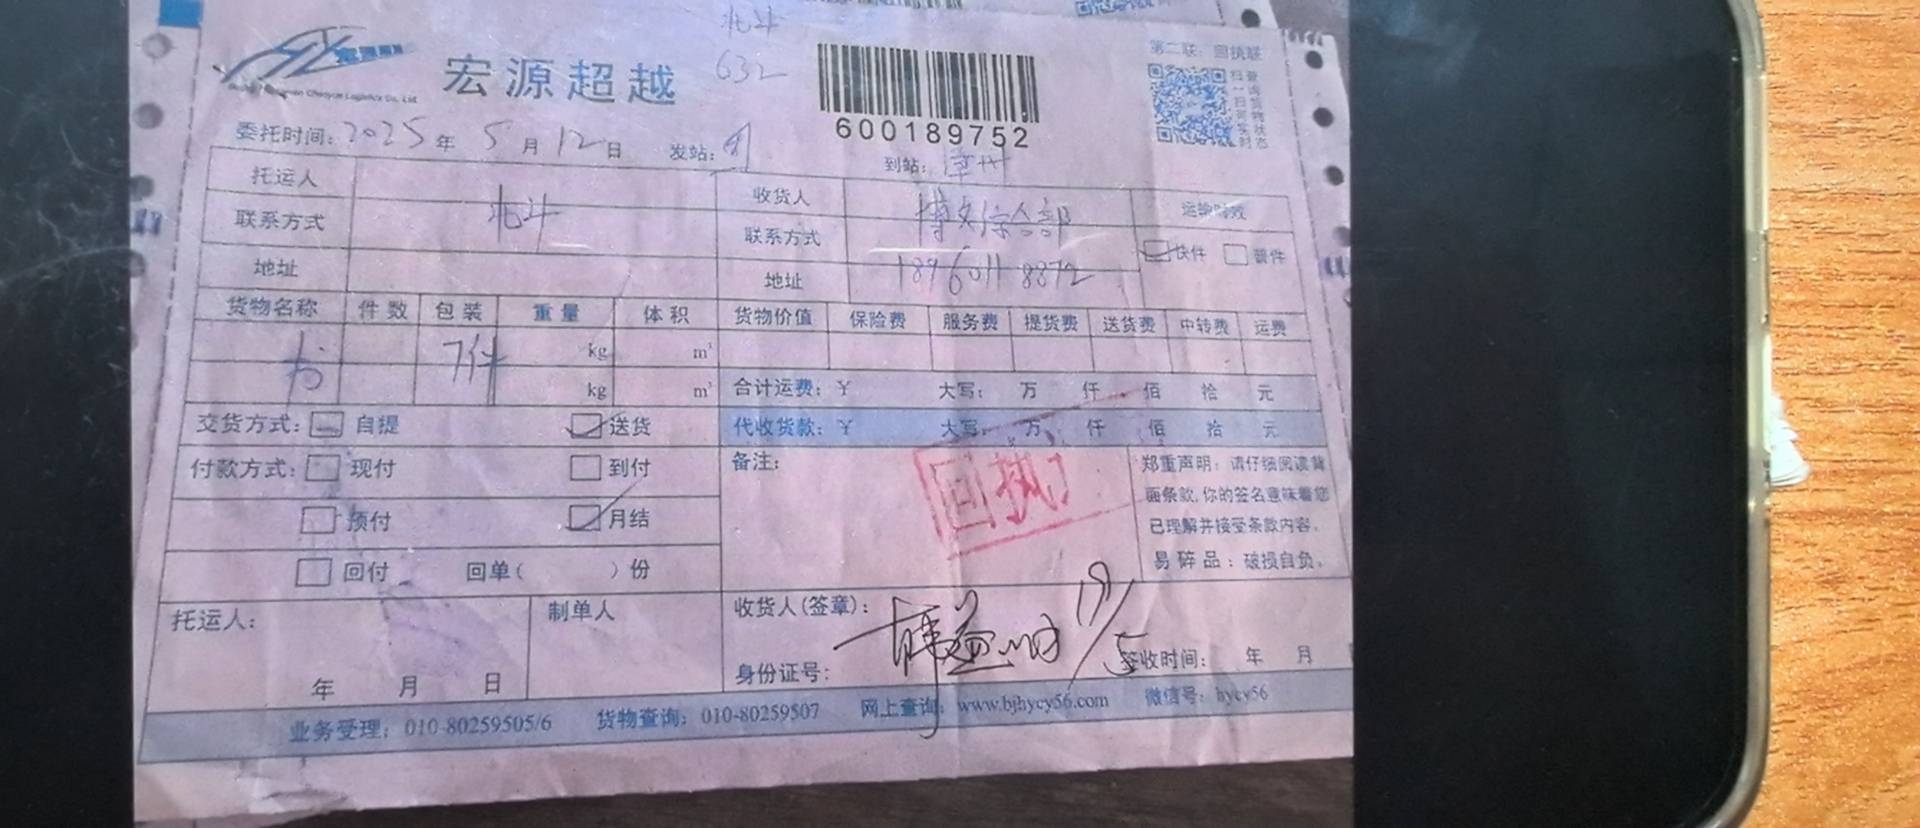 北斗
632
宏源超越
600189752
第二联：回执联
扫一扫可实时
查询货物状态
委托时间：2025年5月12日 发站： 到站：漳州
托运人 北斗 收货人 博文综合部 运输时效
联系方式 联系方式 18960118872 快件 普件
地址 地址
货物名称 件数 包装 重量 体积 货物价值 保险费 服务费 提货费 送货费 中转费 运费
书 7件 kg m³
kg m³ 合计运费：￥ 大写： 万 仟 佰 拾 元
交货方式： 自提 送货 代收货款：￥ 大写： 万 仟 佰 拾 元
付款方式： 现付 到付 备注：
预付 月结
回付 回单( )份
回执
郑重声明：请仔细阅读背
面条款,你的签名意味着您
已理解并接受条款内容。
易碎品：破损自负。
托运人： 制单人 收货人(签章)：
年 月 日 身份证号： 19/5 签收时间： 年 月
业务受理：010-80259505/6 货物查询：010-80259507 网上查询：www.bjhycy56.com 微信号：hycy56